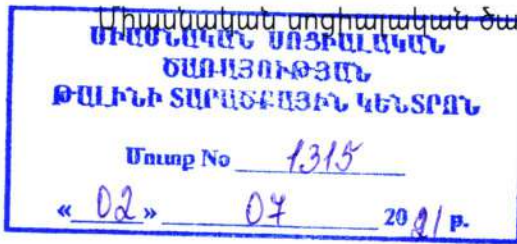 Միասնական սոցիալական ծա
ՄԻԱՍՆԱԿԱՆ ՍՈՑԻԱԼԱԿԱՆ
ԾԱՌԱՅՈՒԹՅԱՆ
ԹԱԼԻՆԻ ՏԱՐԱԾՔԱՅԻՆ ԿԵՆՏՐՈՆ
Մուտք No 1315
« 02 » 07 2021 թ.